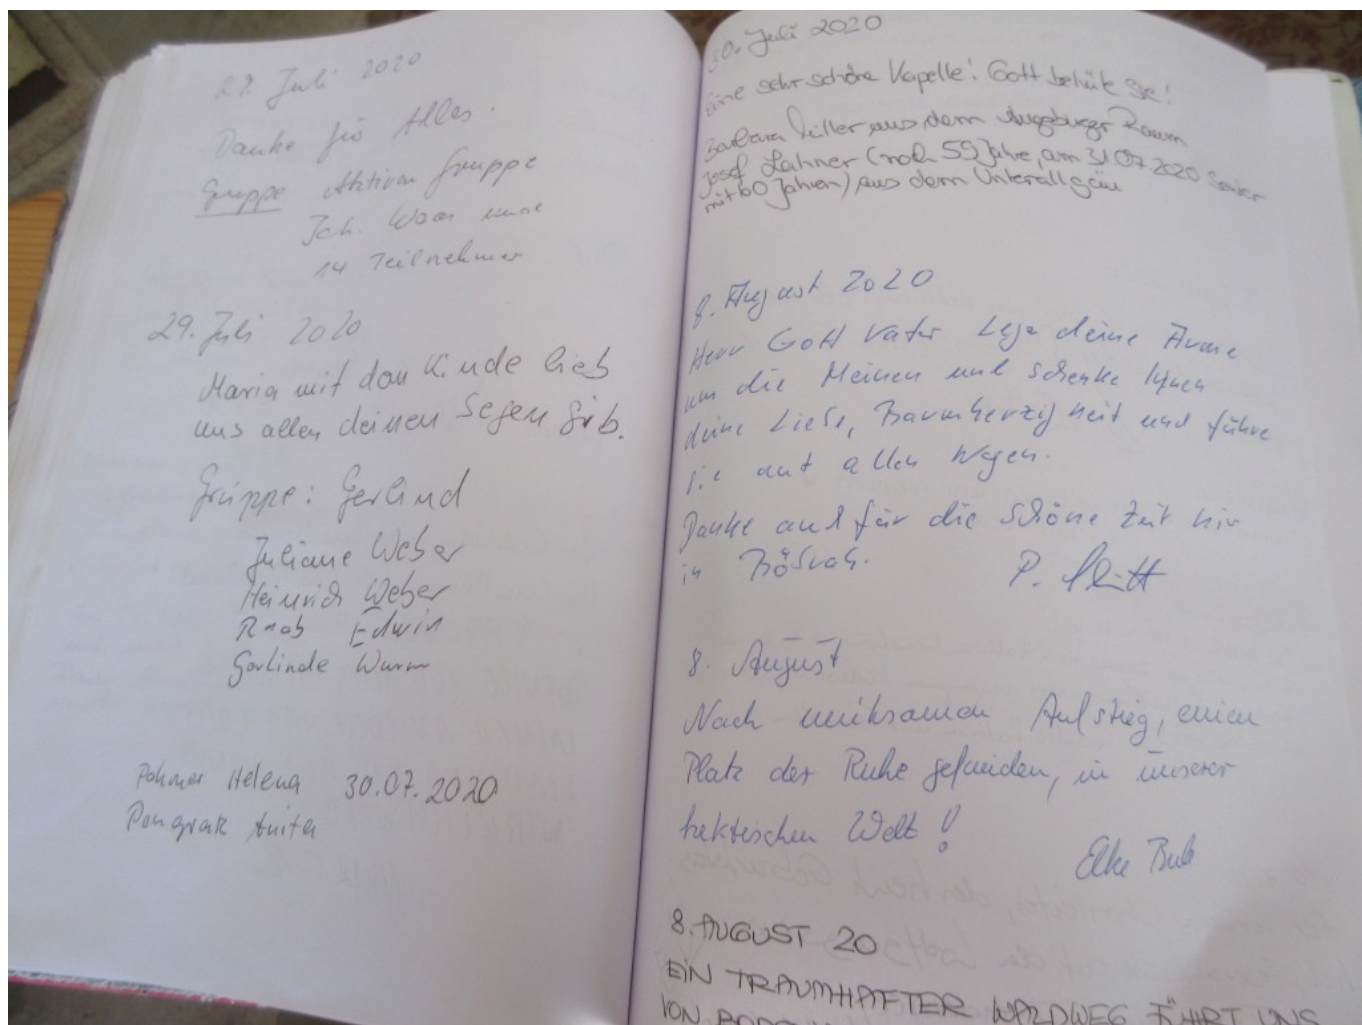 Juli 2020
Danke für Alles.
Gruppe Aktiven Gruppe
Joh.
14 Teilnehmer
29. Juli 2020
Maria mit dem Kinde lieb
uns allen deinen Segen gib.
Gruppe: Gerlind
Juliane Weber
Heinrich Weber
Raab Edwin
Gerlinde Wurm
Helena 30.07.2020
Anita
30. Juli 2020
Eine sehr schöne Kapelle! Gott behüte Sie!
Barbara aus dem Augsburger Raum
Josef Lahner (noch 59 Jahre, am 31.07.2020
mit 60 Jahren) aus dem Unterallgäu
8. August 2020
Herr Gott Vater Lege deine Arme
um die Meinen und schenke Ihnen
deine Liebe, Barmherzigkeit und führe
sie auf allen Wegen.
Danke auch für die schöne Zeit hier
in
P.
8. August
Nach mühsamen Aufstieg, einen
Platz der Ruhe gefunden, in unserer
hektischen Welt!
Elke
8. AUGUST 20
EIN TRAUMHAFTER WALDWEG FÜHRT UNS
VON